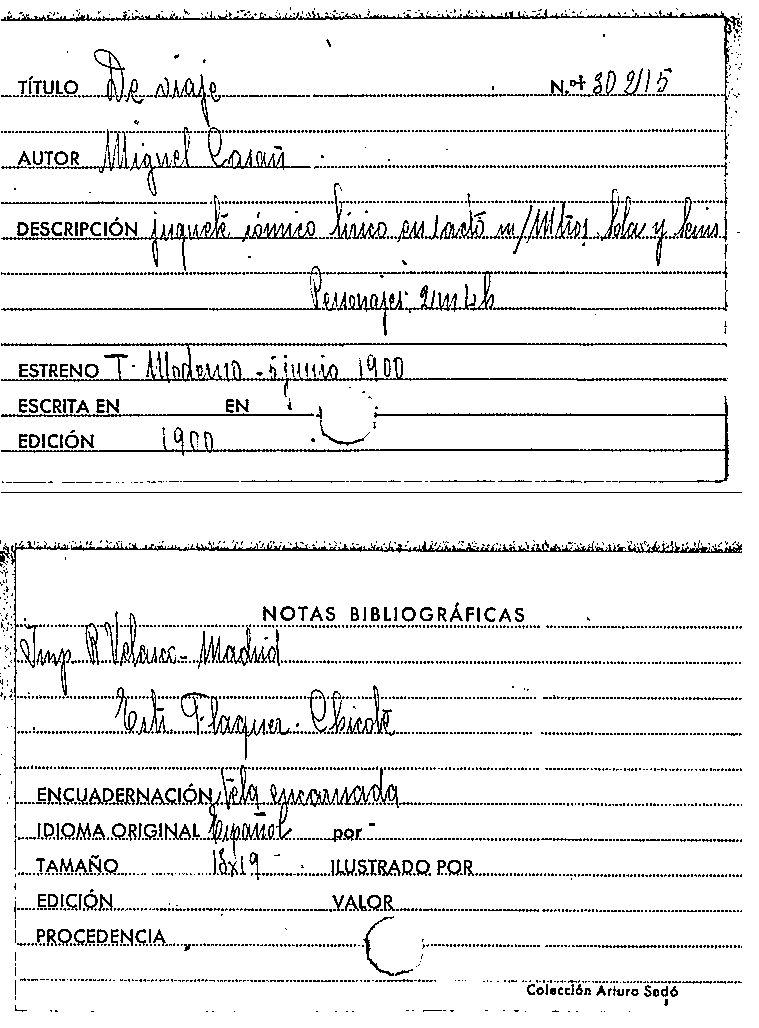 TÍTULO De viaje N.º 30215
AUTOR Miguel Casañ
DESCRIPCIÓN juguete cómico lírico en 1 acto m/Mtros. y
Personajes: 2/m 4 h
ESTRENO T. Moderno - 5 junio 1900
ESCRITA EN EN
EDICIÓN 1900
NOTAS BIBLIOGRÁFICAS
Imp. R Velasco - Madrid
Flaquer - Chicote
ENCUADERNACIÓN tela encarnada
IDIOMA ORIGINAL Español por -
TAMAÑO 13x19 - ILUSTRADO POR
EDICIÓN VALOR
PROCEDENCIA
Colección Arturo Sedó